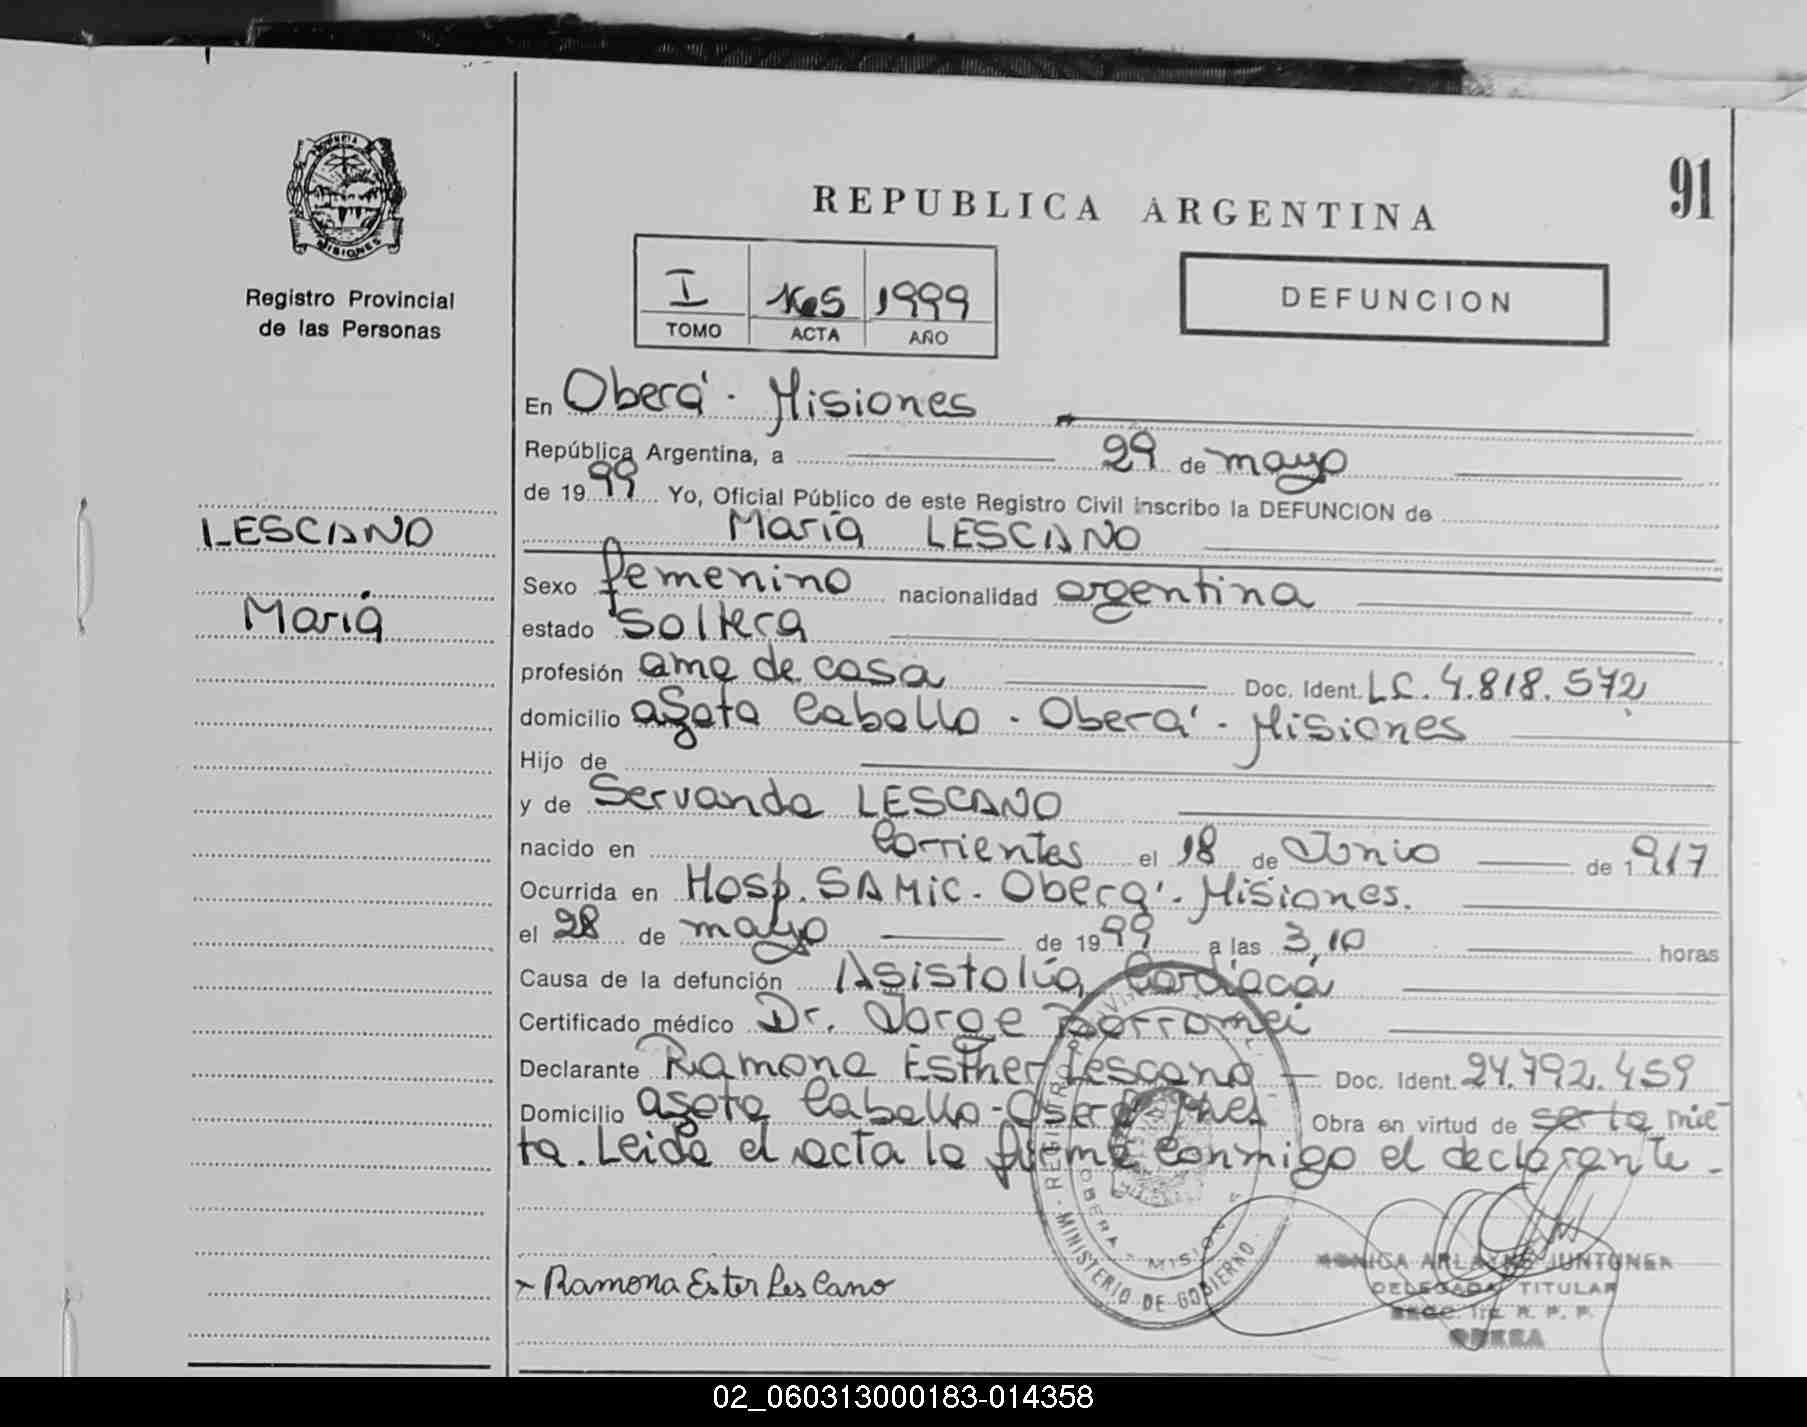 91
REPUBLICA ARGENTINA
PROVINCIA
MISIONES
Registro Provincial
de las Personas
I 165 1999
TOMO ACTA AÑO
DEFUNCION
LESCANO
María
En Oberá - Misiones
República Argentina, a 29 de mayo
de 1999 Yo, Oficial Público de este Registro Civil inscribo la DEFUNCION de
María LESCANO
Sexo femenino nacionalidad argentina
estado soltera
profesión ama de casa Doc. Ident. L.C. 4.818.572
domicilio azota Caballo - Oberá - Misiones
Hijo de
y de Servanda LESCANO
nacido en Corrientes el 18 de Junio de 1917
Ocurrida en Hosp. SAMIC - Oberá - Misiones.
el 28 de mayo de 1999 a las 3,10 horas
Causa de la defunción Asistolia Cardíaca
Certificado médico Dr. Jorge Borromei
Declarante Ramona Esther Lescano Doc. Ident. 24.792.459
Domicilio azota Caballo - Oberá Mnes Obra en virtud de ser la nie
ta. Leida el acta la firma conmigo el declarante -
REGISTRO PROVINCIAL
OBERA - MISIONES
MINISTERIO DE GOBIERNO
x Ramona Ester Lescano
MONICA JUNTUNEN
DELEGADA TITULAR
SECC. 1ra. R. P. P.
OBERA
02_060313000183-014358